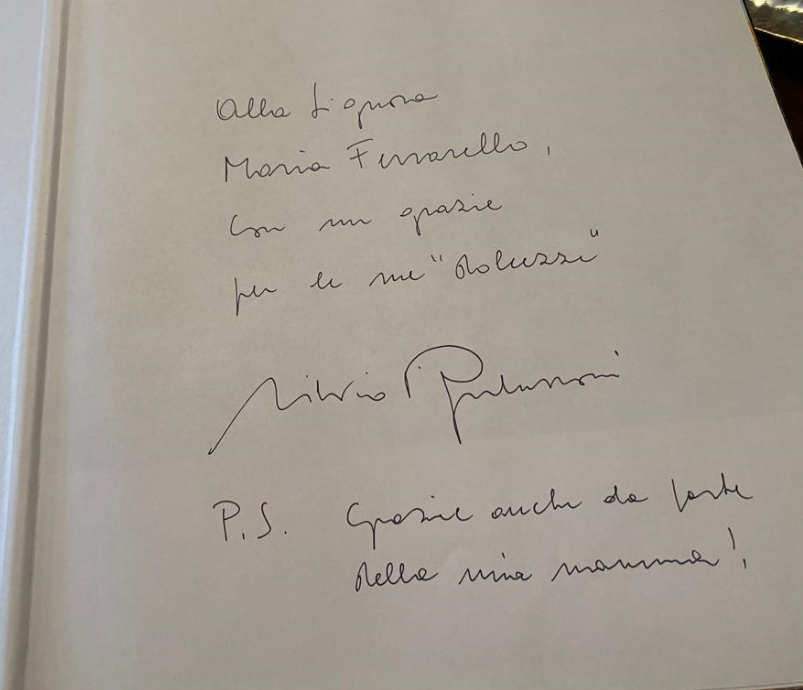 Alla Signora
Maria Ferrarello,
con un grazie
per le sue "dolcezze"
Silvio Berlusconi
P.S. Grazie anche da parte
della mia mamma!